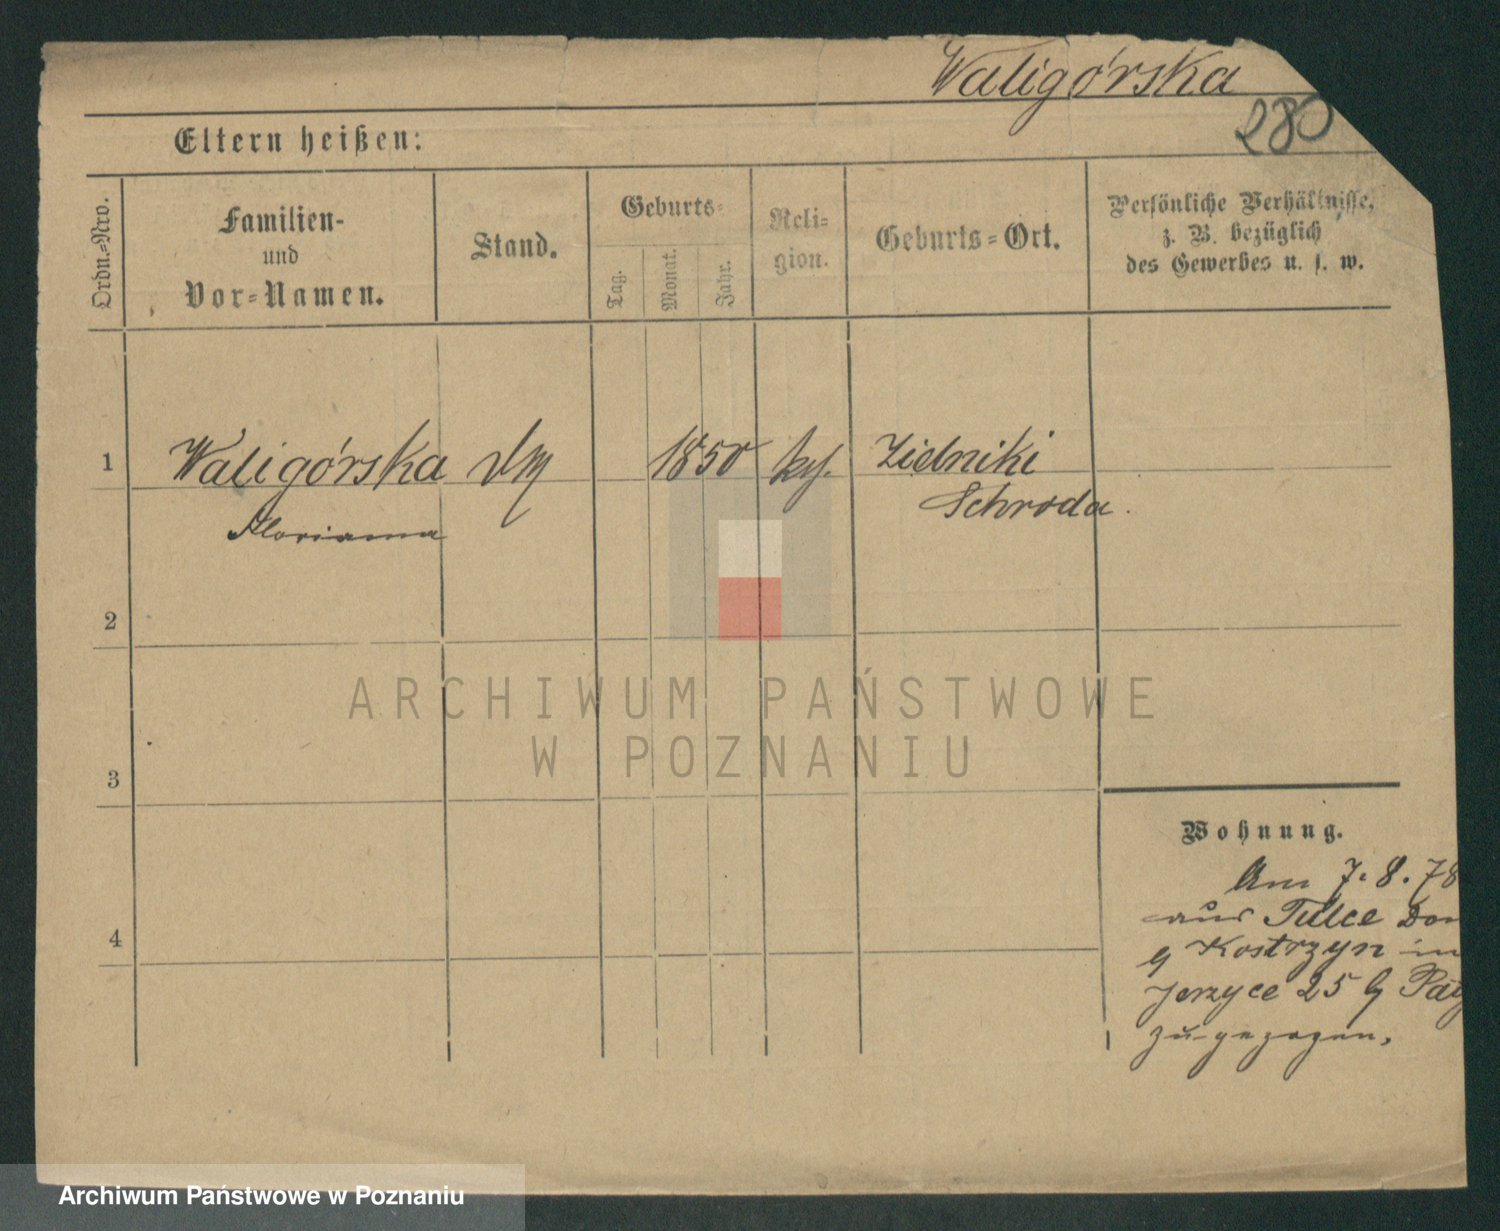 Waligórska
280
Eltern heißen:
Ordn.=Nro.
Familien-
und
Vor=Namen.
Stand.
Geburts-
Tag.
Monat.
Jahr.
Reli-
gion.
Geburts=Ort.
Persönliche Verhältnisse,
z. B. bezüglich
des Gewerbes u. s. w.
1 Waligórska 1850 Zielniki
Schroda.
Floriana
2
3
4
ARCHIWUM PAŃSTWOWE
W POZNANIU
Wohnung.
Am 7. 8. 78
aus Tulce Dom
Kostrzyn in
Jerzyce 25
zugezogen.
Archiwum Państwowe w Poznaniu